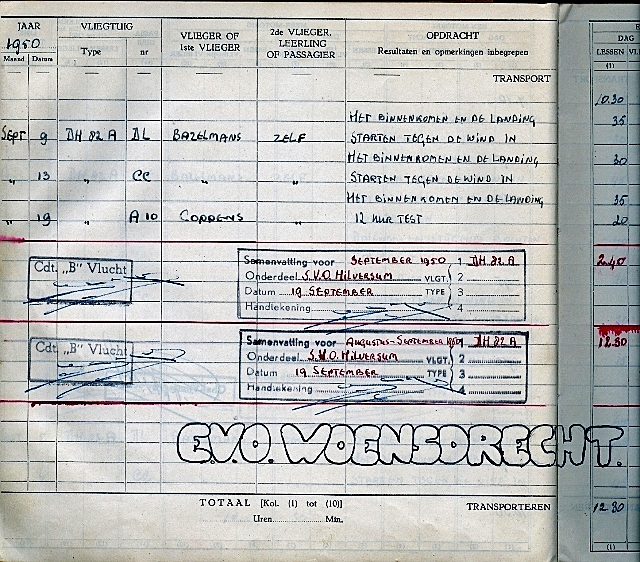 JAAR VLIEGTUIG VLIEGER OF 1ste VLIEGER 2de VLIEGER, LEERLING OF PASSAGIER OPDRACHT DAG
1950 Type nr Resultaten en opmerkingen inbegrepen LESSEN VL
Maand Datum (1)
TRANSPORT 10.30
HET BINNENKOMEN EN DE LANDING 35
SEPT 9 DH 82 A DL BAZELMANS ZELF STARTEN TEGEN DE WIND IN
HET BINNENKOMEN EN DE LANDING 30
" 13 " CC " " STARTEN TEGEN DE WIND IN
HET BINNENKOMEN EN DE LANDING 35
" 19 " A 10 COPPENS " 12 UUR TEST 20
Cdt. „B" Vlucht
Samenvatting voor SEPTEMBER 1950 1 DH 82 A 2.40
Onderdeel S.V.O. HILVERSUM VLGT. 2
Datum 19 SEPTEMBER TYPE 3
Handtekening 4
Cdt. „B" Vlucht
Samenvatting voor AUGUSTUS-SEPTEMBER 1950 DH 82 A 12.50
Onderdeel S.V.O. HILVERSUM VLGT. 2
Datum 19 SEPTEMBER TYPE 3
Handtekening 4
E.V.O. WOENSDRECHT.
TOTAAL [Kol. (1) tot (10)] TRANSPORTEREN
Uren Min.
(1)